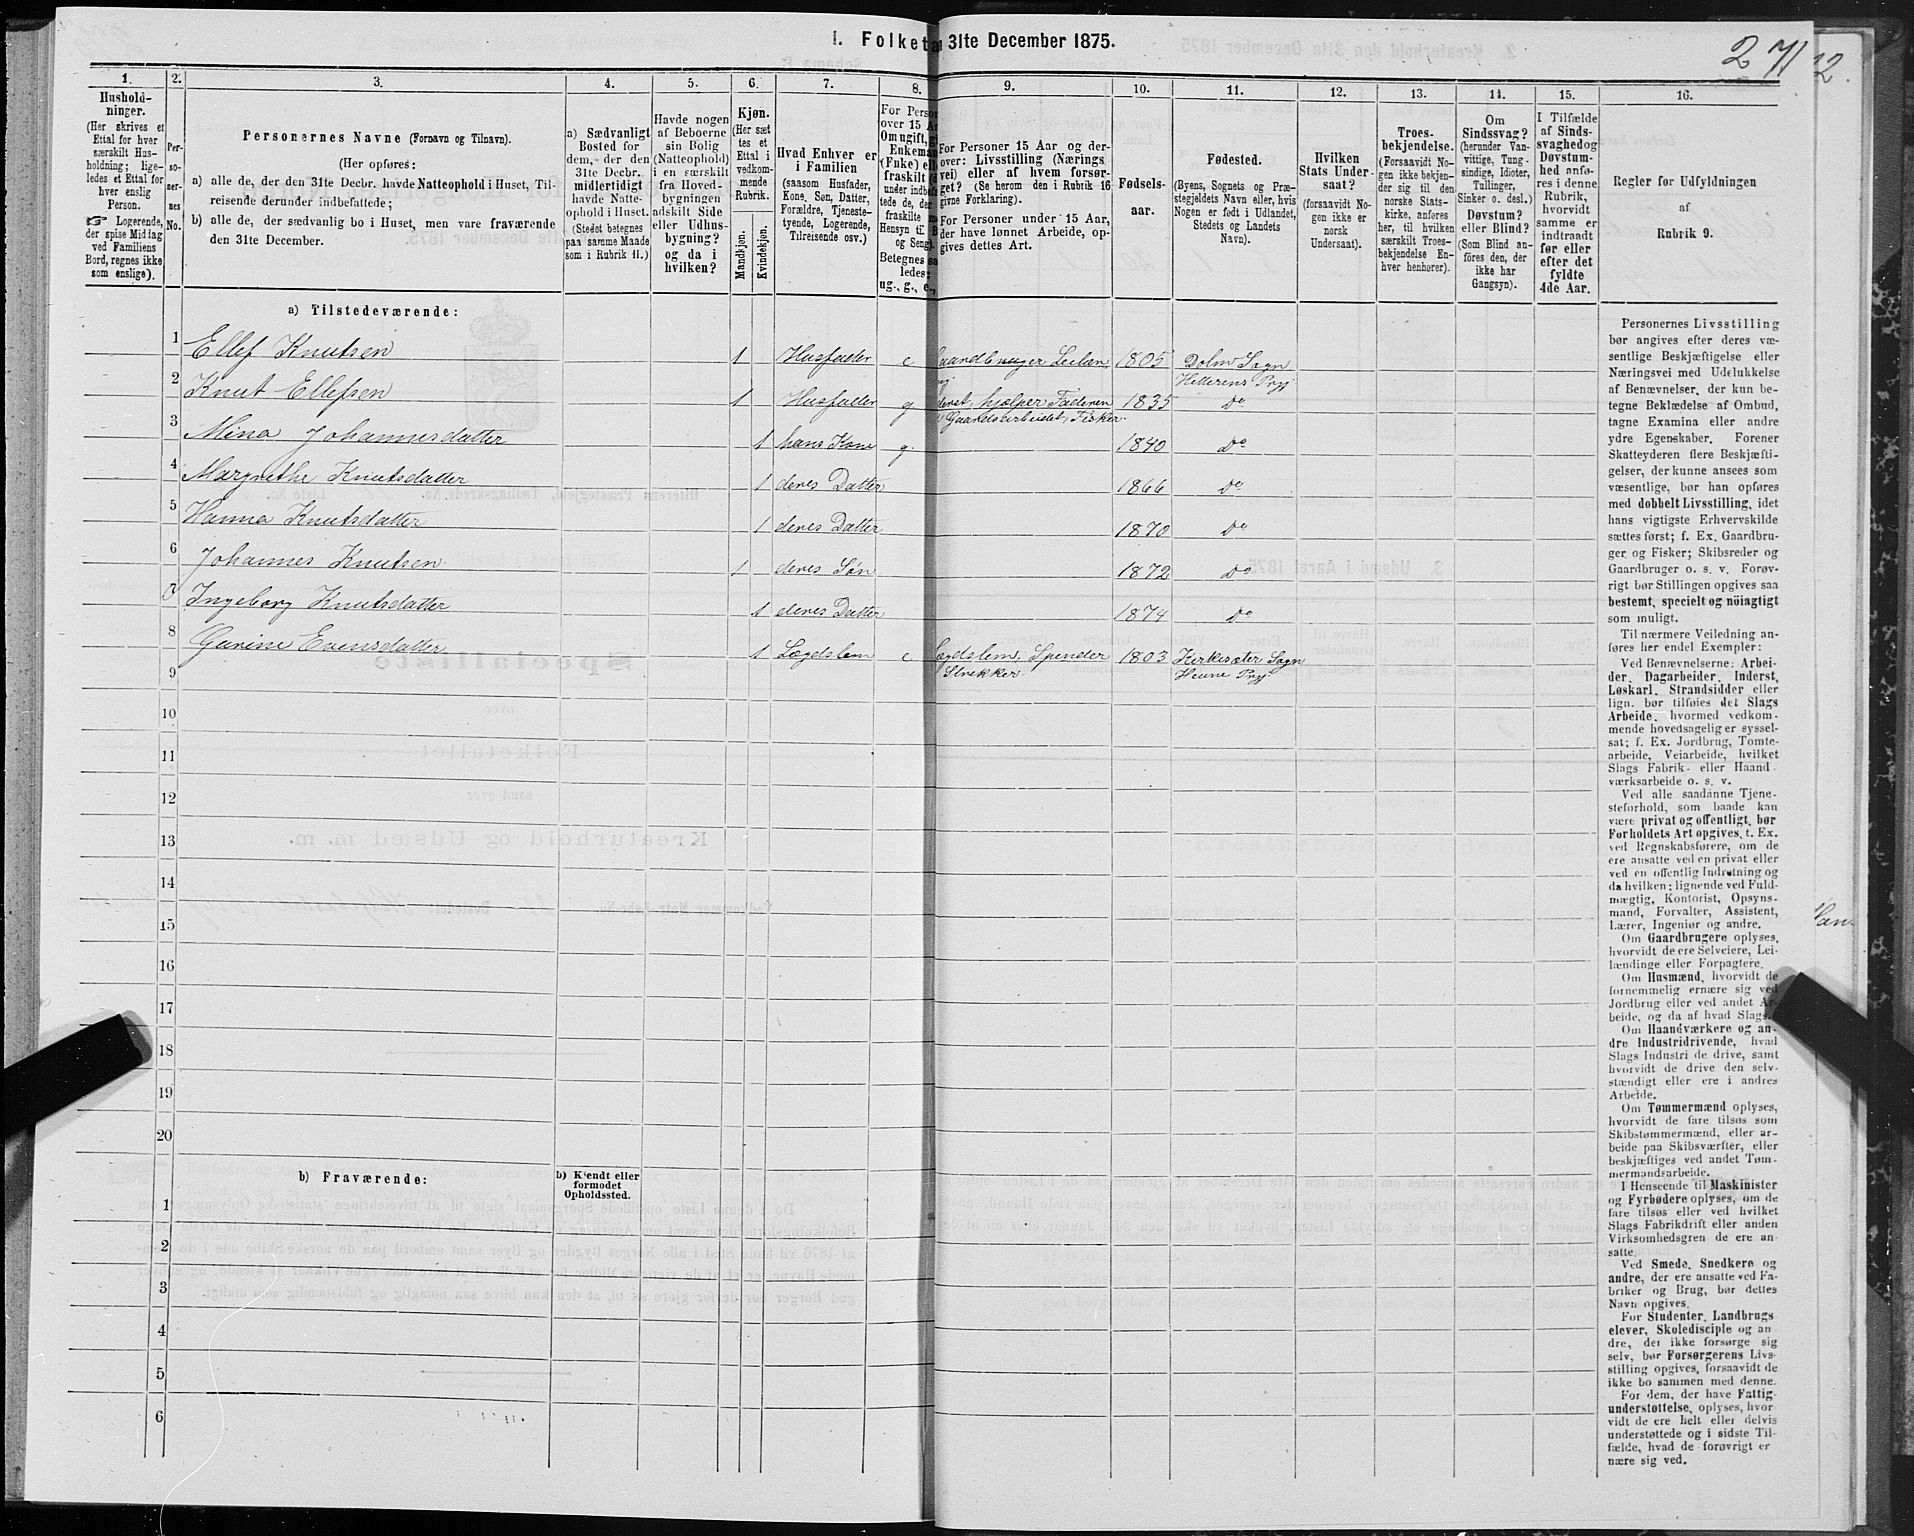 1. Folketa 31te December 1875.
2 71
12.
1. 2. 3. 4. 5. 6. 7. 8. 9. 10. 11. 12. 13. 14. 15. 16.
Hushold-
ninger.
(Her skrives et
Ettal for hver
særskilt Hus-
holdning; lige-
ledes et Ettal for
hver enslig
Person.
☞ Logerende,
der spise Middag
ved Familiens
Bord, regnes ikke
som enslige).
Per-
so-
ner-
nes
No.
Personernes Navne (Fornavn og Tilnavn).
(Her opføres:
a) alle de, der den 31te Decbr. havde Natteophold i Huset, Til-
reisende derunder indbefattede;
b) alle de, der sædvanlig bo i Huset, men vare fraværende
den 31te December.
a) Sædvanligt
Bosted for
dem, der den
31te Decbr.
midlertidigt
havde Natte-
ophold i Huset.
(Stedet betegnes
paa samme Maade
som i Rubrik 11.)
Havde nogen
af Beboerne
sin Bolig
(Natteophold)
i en særskilt
fra Hoved-
bygningen
adskilt Side
eller Udhus-
bygning?
og da i
hvilken?
Kjøn.
(Her sæt-
tes et
Ettal i
vedkom-
mende
Rubrik.
Mandkjøn.
Kvindekjøn.
Hvad Enhver er
i Familien
(saasom Husfader,
Kone, Søn, Datter,
Forældre, Tjeneste-
tyende, Logerende,
Tilreisende osv.)
For Person
over 15 A
Om ugift, g
Enkeman
(Fnke) el
fraskilt (d
under indbe
tede de, der
fraskilte
Hensyn til B
og Seng).
Betegnes sa
ledes:
ug., g., e.,
For Personer 15 Aar og der-
over: Livsstilling (Nærings
vei) eller af hvem forsør-
get? (Se herom den i Rubrik 16
givne Forklaring).
For Personer under 15 Aar,
der have lønnet Arbeide, op-
gives dettes Art.
Fødsels-
aar.
Fødested.
(Byens, Sognets og Præ-
stegjeldets Navn eller, hvis
Nogen er født i Udlandet,
Stedets og Landets
Navn).
Hvilken
Stats Under-
saat?
(forsaavidt No-
gen ikke er
norsk
Undersaat).
Troes-
bekjendelse.
(Forsaavidt No-
gen ikke bekjen-
der sig til den
norske Stats-
kirke, anføres
her, til hvilken
særskilt Troes-
bekjendelse En-
hver henhører).
Om
Sindssvag?
(herunder Van-
vittige, Tung-
sindige, Idioter,
Tullinger,
Sinker o. desl.)
Døvstum?
eller Blind?
(Som Blind an-
føres den, der
ikke har
Gangsyn).
I Tilfælde
af Sinds-
svaghed og
Døvstum-
hed anfø-
res i denne
Rubrik,
hvorvidt
samme er
indtraadt
før eller
efter det
fyldte
4de Aar.
Regler for Udfyldningen
af
Rubrik 9.
a) Tilstedeværende:
1 Ellef Knutsen 1 Husfader e Gaardbruger Leilen 1805 Dolm Sogn
Hitterens Prgj
2 Knut Ellefsen 1 Husfader g hjælper Faderen 1835 do
Gaardsarbeidet, Fisker
3 Mina Johannesdatter 1 hans Kone g. 1840 do
4 Margrethe Knutsdatter 1 deres Datter 1866 do
5 Hanna Knutsdatter 1 deres Datter 1870 do
6 Johannes Knutsen 1 deres Søn 1872 do
7 Ingeborg Knutsdatter 1 deres Datter 1874 do
8 Gurine Evensdatter 1 Lægdslem e Lægdslem, Spinder 1803 Kirkesæter Sogn
Strikker Hevne Prgj
9
10
11
12
13
14
15
16
17
18
19
20
b) Fraværende:
b) Kjendt eller
formodet
Opholdssted.
1
2
3
4
5
6
Personernes Livsstilling
bør angives efter deres væ-
sentlige Beskjæftigelse eller
Næringsvei med Udelukkelse
af Benævnelser, der kun be-
tegne Beklædelse af Ombud,
tagne Examina eller andre
ydre Egenskaber. Forener
Skatteyderen flere Beskjæfti-
gelser, der kunne ansees som
væsentlige, bør han opføres
med dobbelt Livsstilling, idet
hans vigtigste Erhvervskilde
sættes først; f. Ex. Gaardbru-
ger og Fisker; Skibsreder og
Gaardbruger o. s. v. Forøv-
rigt bør Stillingen opgives saa
bestemt, specielt og nöiagtigt
som muligt.
Til nærmere Veiledning an-
føres her endel Exempler:
Ved Benævnelserne: Arbei-
der, Dagarbeider, Inderst,
Løskarl, Strandsidder eller
lign. bør tilføies det Slags
Arbeide, hvormed vedkom-
mende hovedsagelig er syssel-
sat; f. Ex. Jordbrug, Tomte-
arbeide, Veiarbeide, hvilket
Slags Fabrik- eller Haand-
værksarbeide o. s. v.
Ved alle saadanne Tjene-
steforhold, som baade kan
være privat og offentligt, bør
Forholdets Art opgives, t. Ex.
ved Regnskabsførere, om de
ere ansatte ved en privat eller
ved en offentlig Indretning og
da hvilken; lignende ved Fuld-
mægtig, Kontorist, Opsyns-
mand, Forvalter, Assistent,
Lærer, Ingeniør og andre.
Om Gaardbrugere oplyses,
hvorvidt de ere Selveiere, Lei-
lændinge eller Forpagtere.
Om Husmænd, hvorvidt de
fornemmelig ernære sig ved
Jordbrug eller ved andet Ar-
beide, og da af hvad Slags.
Om Haandværkere og an-
dre Industridrivende, hvad
Slags Industri de drive, samt
hvorvidt de drive den selv-
stændigt eller ere i andres
Arbeide.
Om Tømmermænd oplyses,
hvorvidt de fare tilsøs som
Skibstømmermænd, eller ar-
beide paa Skibsværfter, eller
beskjæftiges ved andet Tøm-
mermandsarbeide.
I Henseende til Maskinister
og Fyrbødere oplyses, om de
fare tilsøs eller ved hvilket
Slags Fabrikdrift eller anden
Virksomhedsgren de ere an-
satte.
Ved Smede, Snedkere og
andre, der ere ansatte ved Fa-
briker og Brug, bør dettes
Navn opgives.
For Studenter, Landbrugs-
elever, Skoledisciple og an-
dre, der ikke forsørge sig
selv, bør Forsørgerens Livs-
stilling opgives, forsaavidt de
ikke bo sammen med denne.
For dem, der have Fattig-
understøttelse, oplyses, hvor-
vidt de ere helt eller delvis
understøttede og i sidste Til-
fælde, hvad de forøvrigt er
nære sig ved.